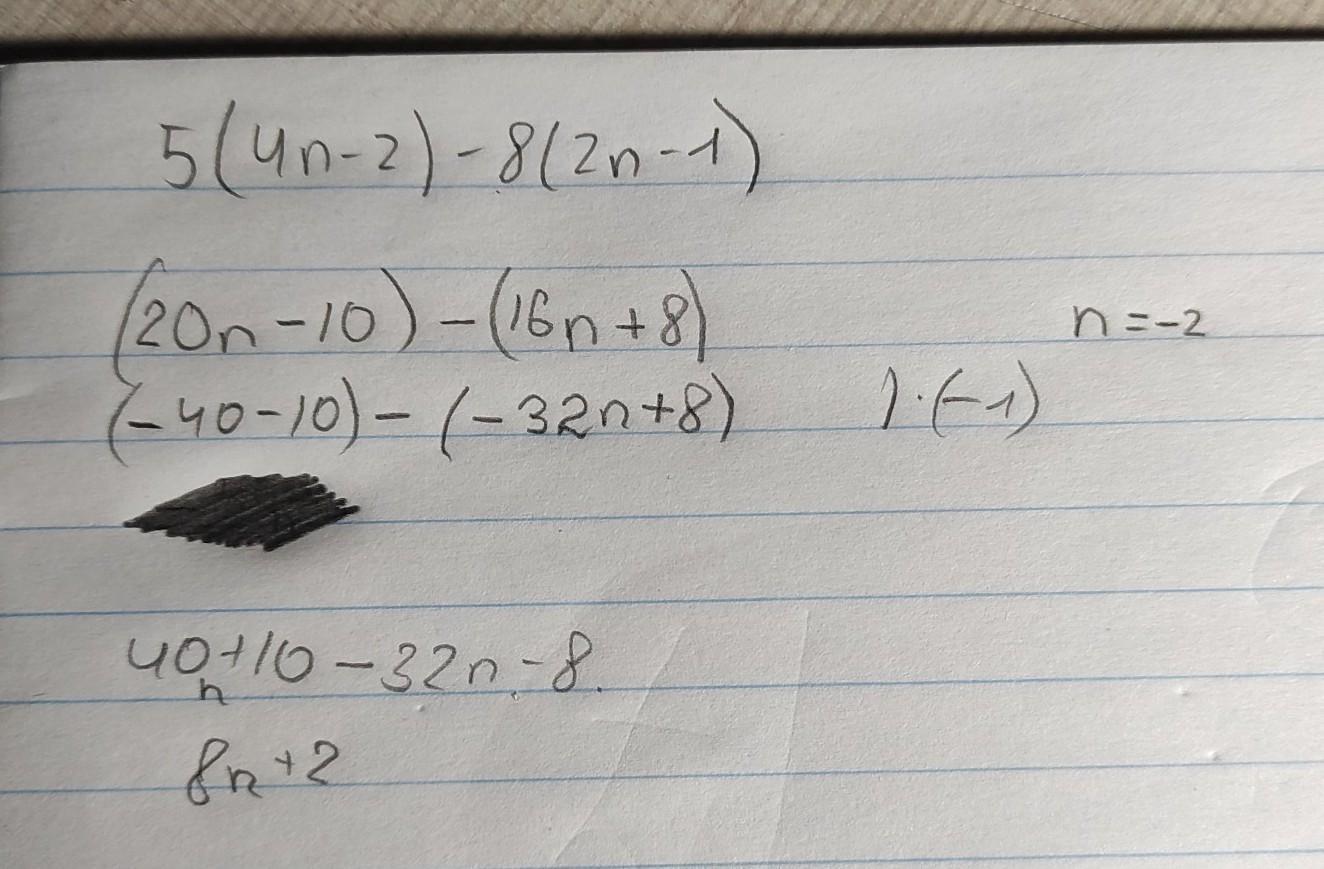 5(4n-2)-8(2n-1)
(20n-10)-(16n+8)
n=-2
(-40-10)-(-32n+8) )·(-1)
40n+10-32n-8.
8n+2